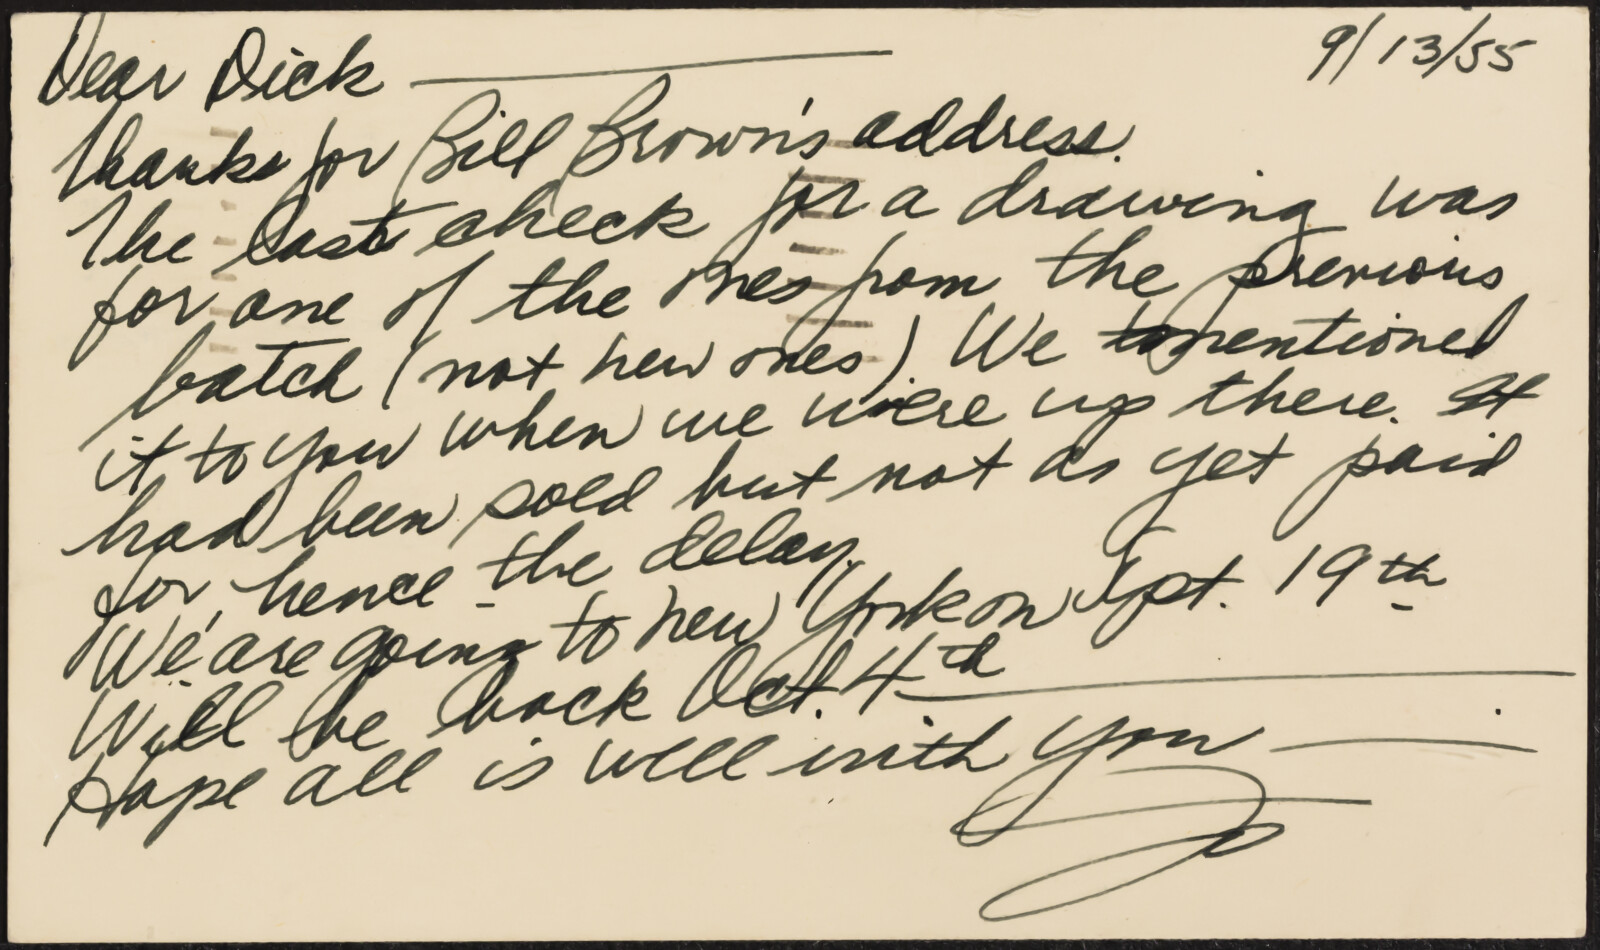 9/13/55
Dear Dick
Thanks for Bill Brown's address.
The last check for a drawing was
for one of the ones from the previous
batch (not new ones) We mentioned
it to you when we were up there. It
had been sold but not as yet paid
for, hence the delay.
We are going to New York on Sept. 19th
Will be back Oct. 4th
Hope all is well with you